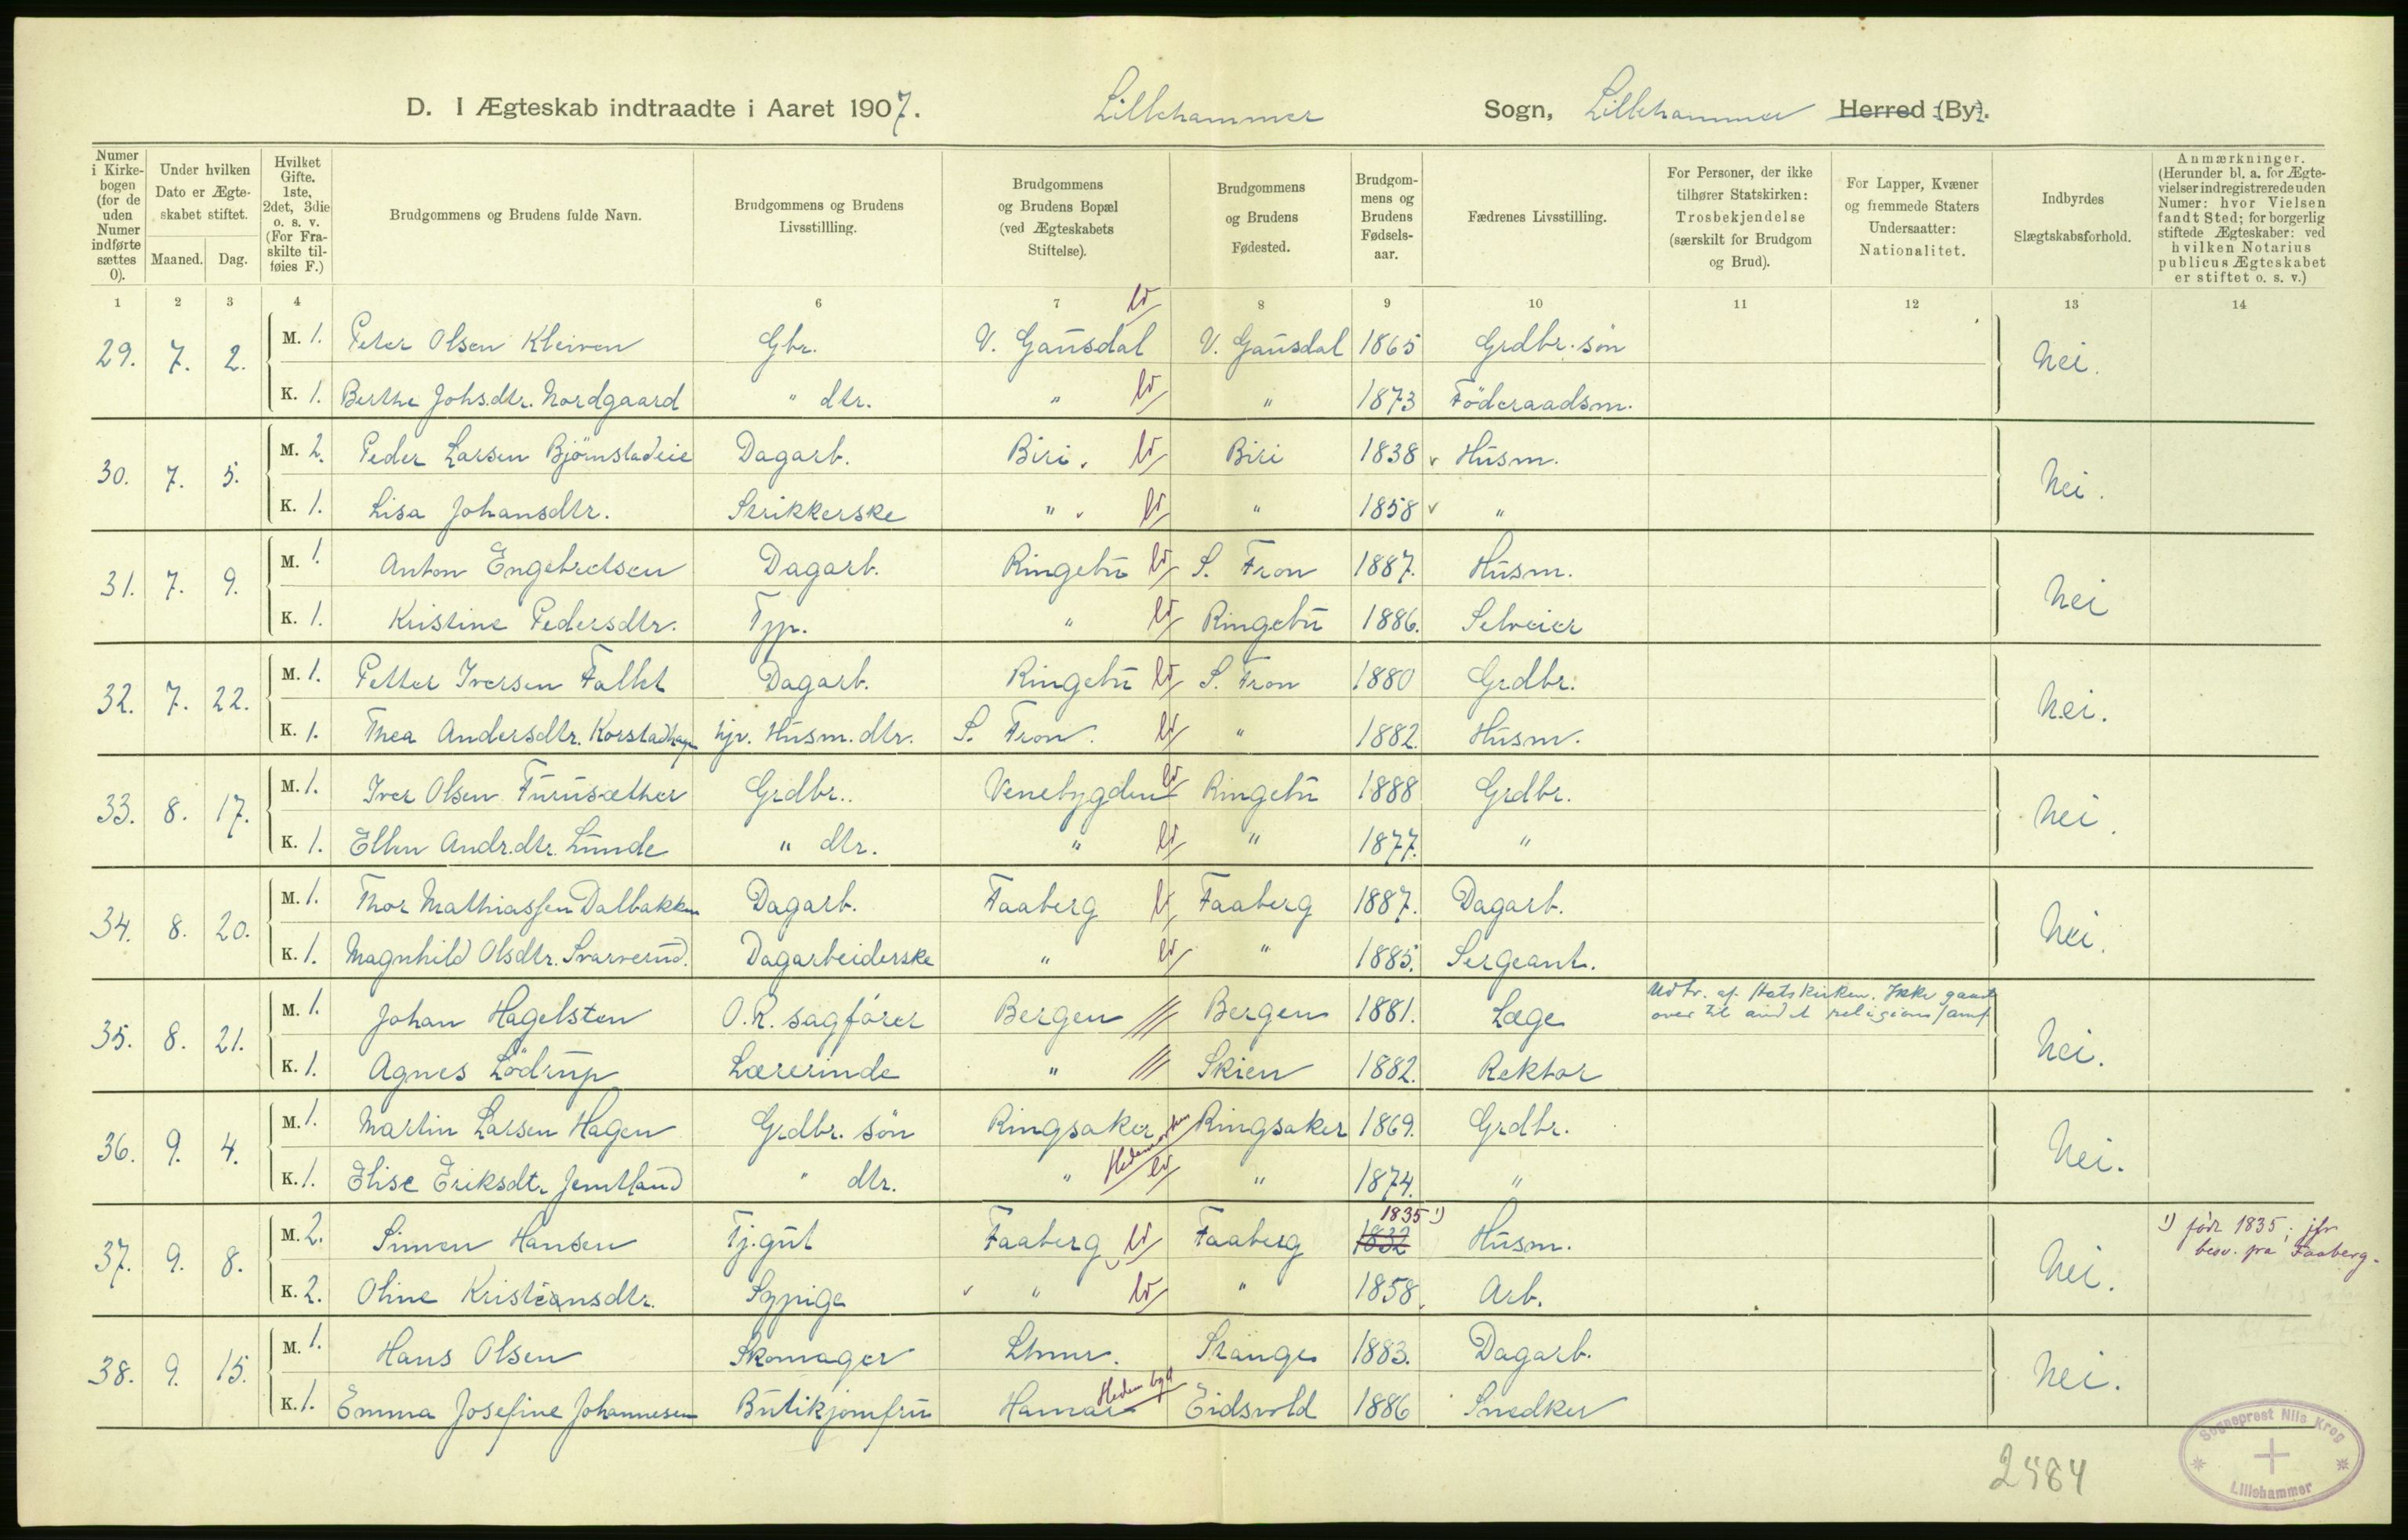 D. I Ægteskab indtraadte i Aaret 1907. Lillehammer Sogn, Lillehammer Herred (By).
Numer i Kirkebogen (for de uden Numer indførte sættes 0).
Under hvilken Dato er Ægteskabet stiftet.
Maaned. Dag.
Hvilket Gifte. 1ste, 2det, 3die o. s. v. (For Fraskilte tilføies F.)
Brudgommens og Brudens fulde Navn.
Brudgommens og Brudens Livsstillling.
Brudgommens og Brudens Bopæl (ved Ægteskabets Stiftelse).
Brudgommens og Brudens Fødested.
Brudgommens og Brudens Fødselsaar.
Fædrenes Livsstilling.
For Personer, der ikke tilhører Statskirken: Trosbekjendelse (særskilt for Brudgom og Brud).
For Lapper, Kvæner og fremmede Staters Undersaatter: Nationalitet.
Indbyrdes Slægtskabsforhold.
Anmærkninger. (Herunder bl. a. for Ægtevielser indregistrerede uden Numer: hvor Vielsen fandt Sted; for borgerlig stiftede Ægteskaber: ved hvilken Notarius publicus Ægteskabet er stiftet o. s. v.)
1 2 3 4 6 7 8 9 10 11 12 13 14
29. 7. 2. M. 1. Peter Olsen Kleiven Gbr. V. Gausdal ld V. Gausdal 1865 Grdbr. søn nei.
K. 1. Berthe Johs.dtr. Nordgaard " dtr. " ld " 1873 Föderaadsm.
30. 7. 5. M. 2. Peder Larsen Bjørnstadeie Dagarb. Biri. ld Biri 1838 Husm. nei.
K. 1. Lisa Johansdtr. Strikkerske " ld " 1858 "
31. 7. 9. M. 1. Anton Engebretsen Dagarb. Ringebu ld S. Fron 1887. Husm. nei
K. 1. Kristine Pedersdtr. Tjp. " ld Ringebu 1886. Selveier
32. 7. 22. M. 1. Petter Iversen Fallet Dagarb. Ringebu ld S. Fron 1880 Grdbr. nei.
K. 1. Thea Andersdtr. Korstadhagen hjv. Husm. dtr. S. Fron. ld " 1882. Husm.
33. 8. 17. M. 1. Iver Olsen Furusæther Grdbr. Venebygden ld Ringebu 1888 Grdbr. nei.
K. 1. Ellen Andr.dtr. Lunde " dtr. " ld " 1877. "
34. 8. 20. M. 1. Thor Mathiassen Dalbakken Dagarb. Faaberg ld Faaberg 1887. Dagarb. nei.
K. 1. Magnhild Olsdtr. Svarverud. Dagarbeiderske " ld " 1885. Sergeant.
35. 8. 21. M. 1. Johan Hagelsten O.R. sagfører Bergen Bergen 1881. Læge Udtr. af Statskirken. Ikke gaaet over til andet religionssamf nei.
K. 1. Agnes Lödrup Lærerinde " Skien 1882. Rektor
36. 9. 4. M. 1. Martin Larsen Hagen Grdbr. søn Ringsaker Hedemarken Ringsaker 1869. Grdbr. nei.
K. 1. Elise Eriksdt. Jemtland " dtr. " ld " 1874. "
37. 9. 8. M. 2. Simen Hansen Tj.gut Faaberg ld Faaberg 1832 1835 ¹) Husm. nei. ¹) född 1835; jfr besv. fra Faaberg.
K. 2. Oline Kristiansdtr. Sypige " ld " 1858. Arb.
38. 9. 15. M. 1. Hans Olsen Skomager Lhmr. Stange 1883. Dagarb. nei.
K. 1. Emma Josefine Johannesen Butikjomfru Hamar Eidsvold 1886 Snedker
2484
Sogneprest Nils Krog
Lillehammer